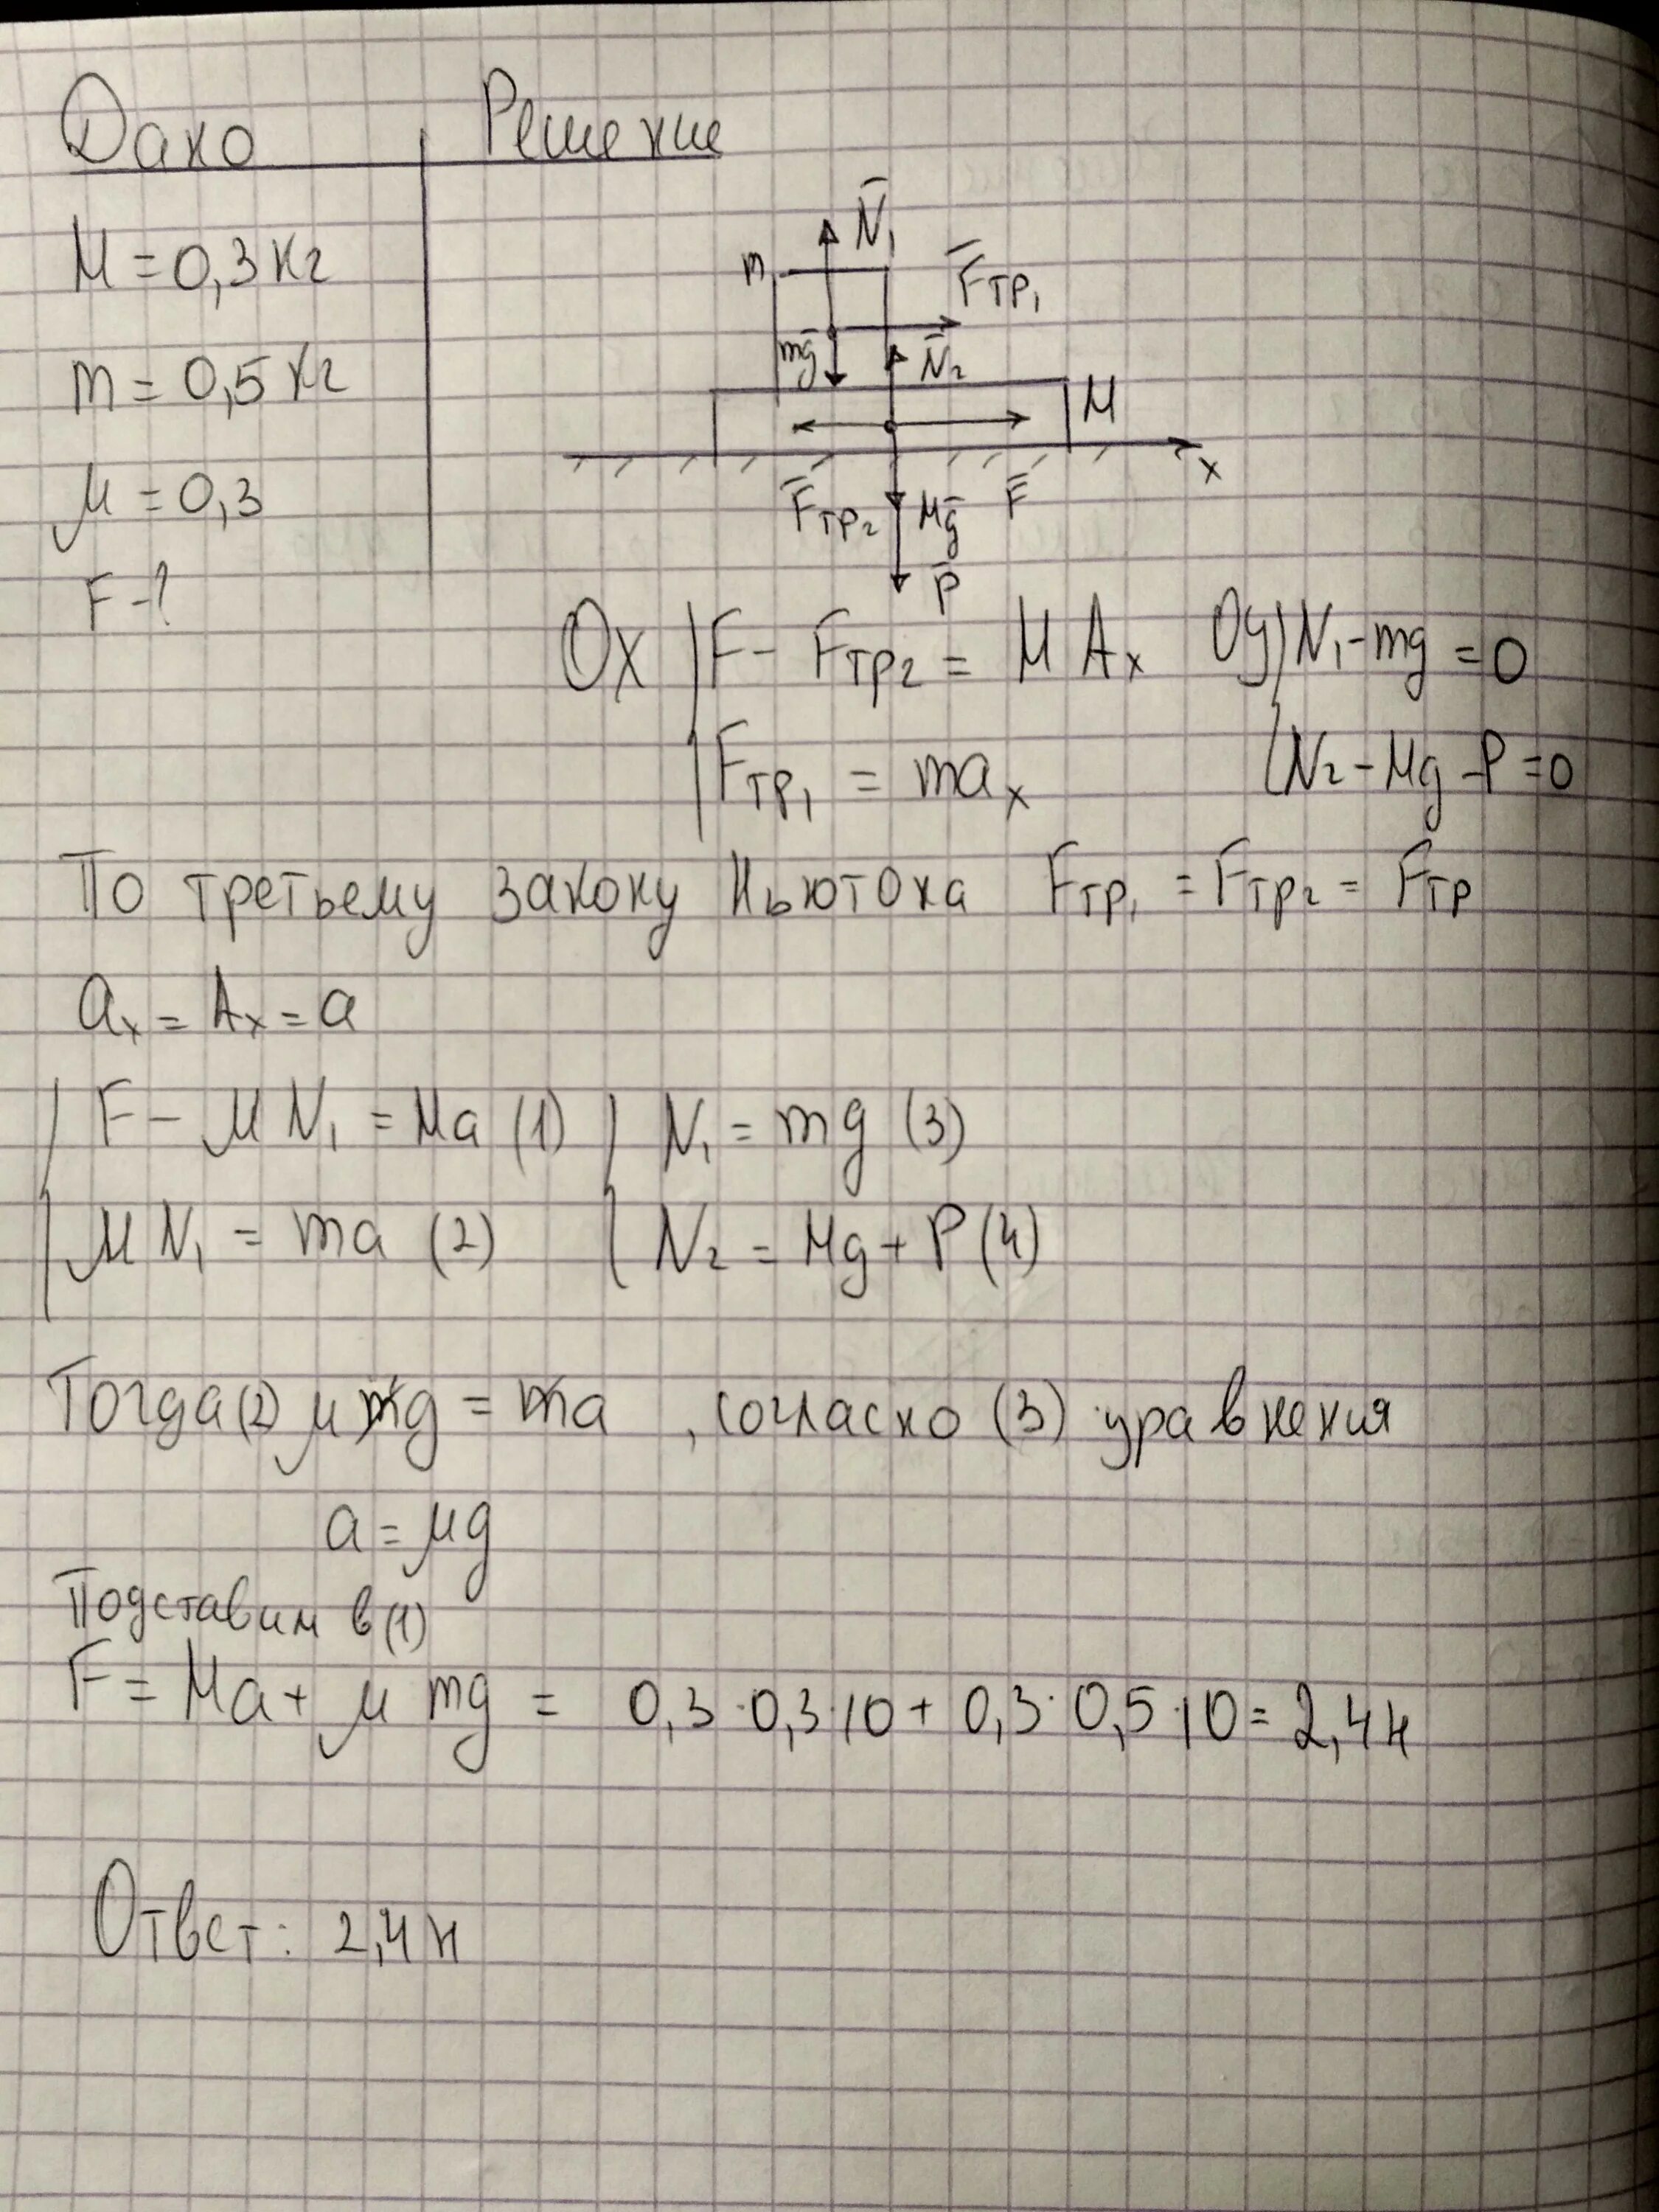 Дано Решение
M = 0,3 кг
m = 0,5 кг
μ = 0,3
F - ?
N̄₁
m
F̄тр₁
mḡ
N̄₂
M
x
F̄тр₂
Mḡ
F̄
P̄
Ox F - Fтр₂ = M Aₓ Oy N₁ - mg = 0
Fтр₁ = maₓ N₂ - Mg - P = 0
По третьему закону Ньютона Fтр₁ = Fтр₂ = Fтр
aₓ = Aₓ = a
F - μ N₁ = Ma (1) N₁ = mg (3)
μ N₁ = ma (2) N₂ = Mg + P (4)
Тогда (2) μ mg = ma , согласно (3) уравнения
a = μg
Подставим в (1)
F = Ma + μ mg = 0,3 · 0,3 · 10 + 0,3 · 0,5 · 10 = 2,4 н
Ответ: 2,4 н